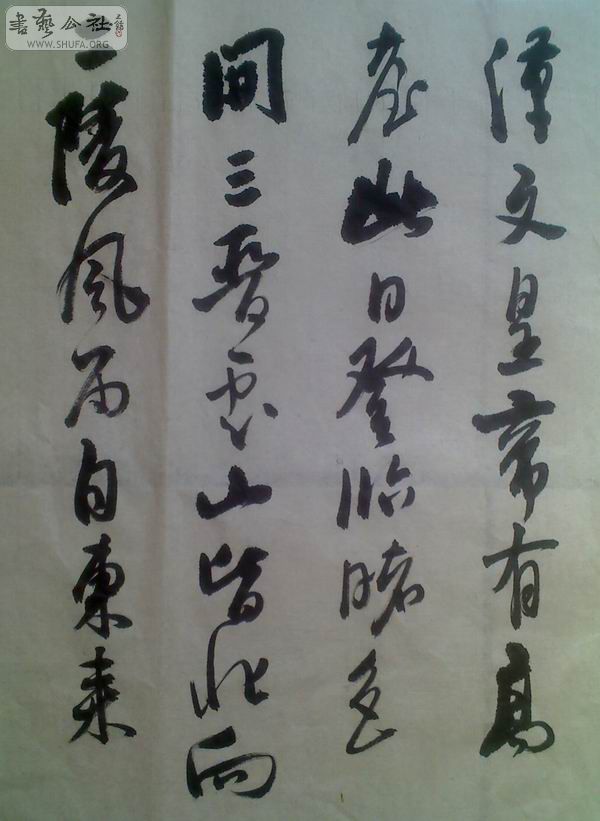 書藝公社
WWW.SHUFA.ORG
漢文皇帝有高
臺此日登臨曙色
開三晉雲山皆北向
二陵風雨自東來